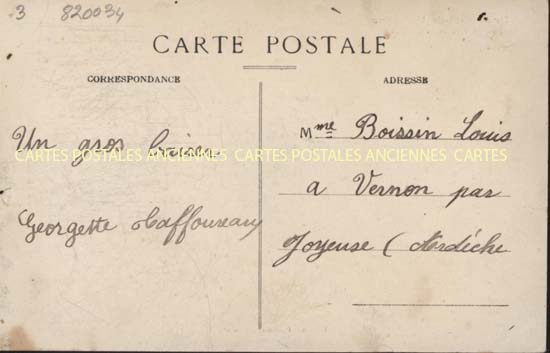 3 820034
CARTE POSTALE
CORRESPONDANCE
ADRESSE
Un gros
Georgette
Mme Boissin Louis
a Vernon par
Joyeuse (Ardèche
CARTES POSTALES ANCIENNES CARTES POSTALES ANCIENNES CARTES